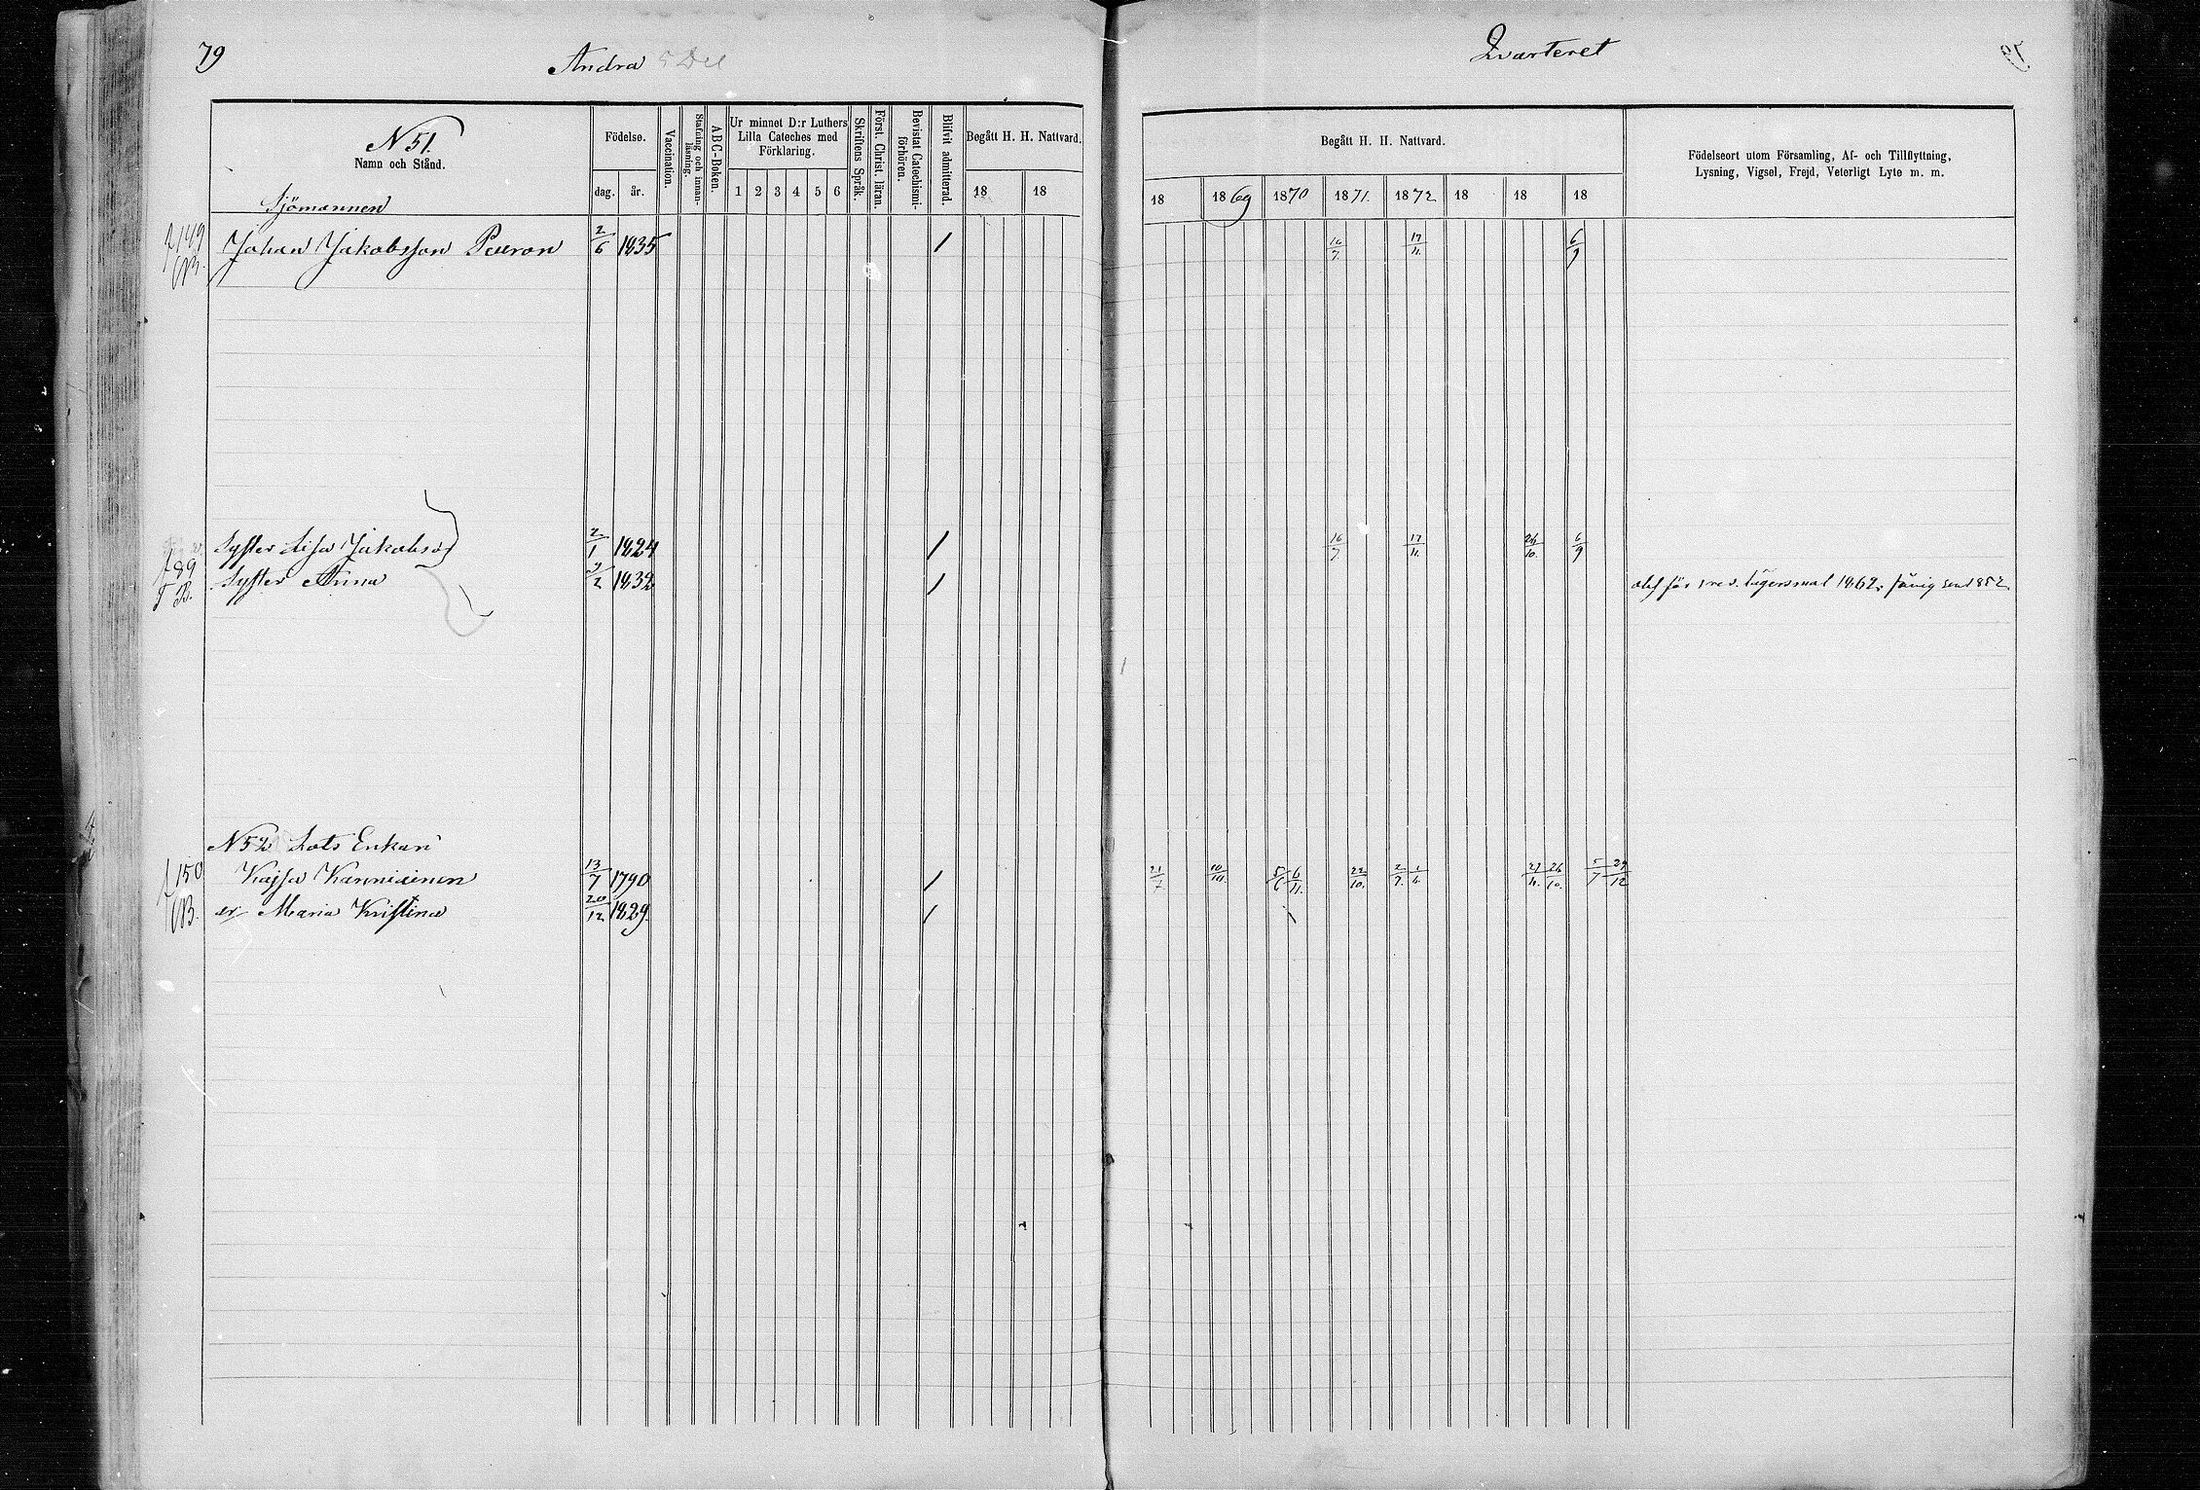 79
Andra 5 Del
Qvarteret
N 51.
Namn och Stånd.
Födelse.
dag. år.
Vaccination.
Stafning och innanläsning.
ABC-Boken.
Ur minnet D:r Luthers
Lilla Cateches med
Förklaring.
1 2 3 4 5 6
Skriftens Språk.
Först. Christ. läran.
Bevistat Catechismiförhören.
Blifvit admitterad.
Begått H. H. Nattvard.
18 18
Begått H. H. Nattvard.
18 1869 1870 1871. 1872 18 18 18
Födelseort utom Församling, Af- och Tillflyttning,
Lysning, Vigsel, Frejd, Veterligt Lyte m. m.
Sjömannen
149 Johan Jakobsson Peuron 2/6 1835 / 16/7. 17/11. 6/9
Syster Lisa Jakobsdr 2/1 1824 / 16/7. 17/11. 26/10. 6/9
89 Syster Anna 9/2 1832 / 1862
N 52 Lots Enkan
150 Kajsa Kanniainen 13/7 1790 / 21/7 10/10. 5/6 6/11. 22/10. 2/7. 1/4. 27/4. 26/10. 5/7 29/12
B. dr Maria Kristina 20/12 1829. /